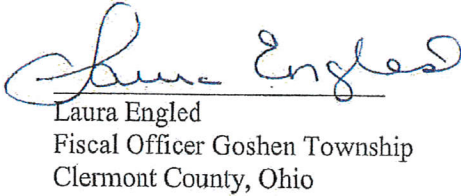 Laura Engled
Laura Engled
Fiscal Officer Goshen Township
Clermont County, Ohio